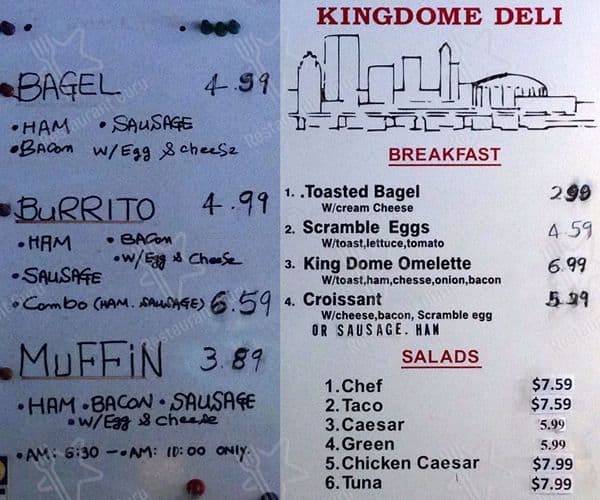 BAGEL 4.99
• HAM • SAUSAGE
• BACON W/Egg & cheese
BURRITO 4.99
• HAM • BACON
• W/Egg & Cheese
• SAUSAGE
• Combo (HAM. SAUSAGE) 6.59
MUFFIN 3.89
• HAM • BACON • SAUSAGE
• W/Egg & cheese
• AM: 6:30 - • AM: 10:00 ONLY.
KINGDOME DELI
BREAKFAST
1. .Toasted Bagel 2.99
W/cream Cheese
2. Scramble Eggs 4.59
W/toast,lettuce,tomato
3. King Dome Omelette 6.99
W/toast,ham,chesse,onion,bacon
4. Croissant
W/cheese,bacon, Scramble egg
OR SAUSAGE. HAM
SALADS
1. Chef $7.59
2. Taco $7.59
3. Caesar 5.99
4. Green 5.99
5. Chicken Caesar $7.99
6. Tuna $7.99
Restaurant Guru